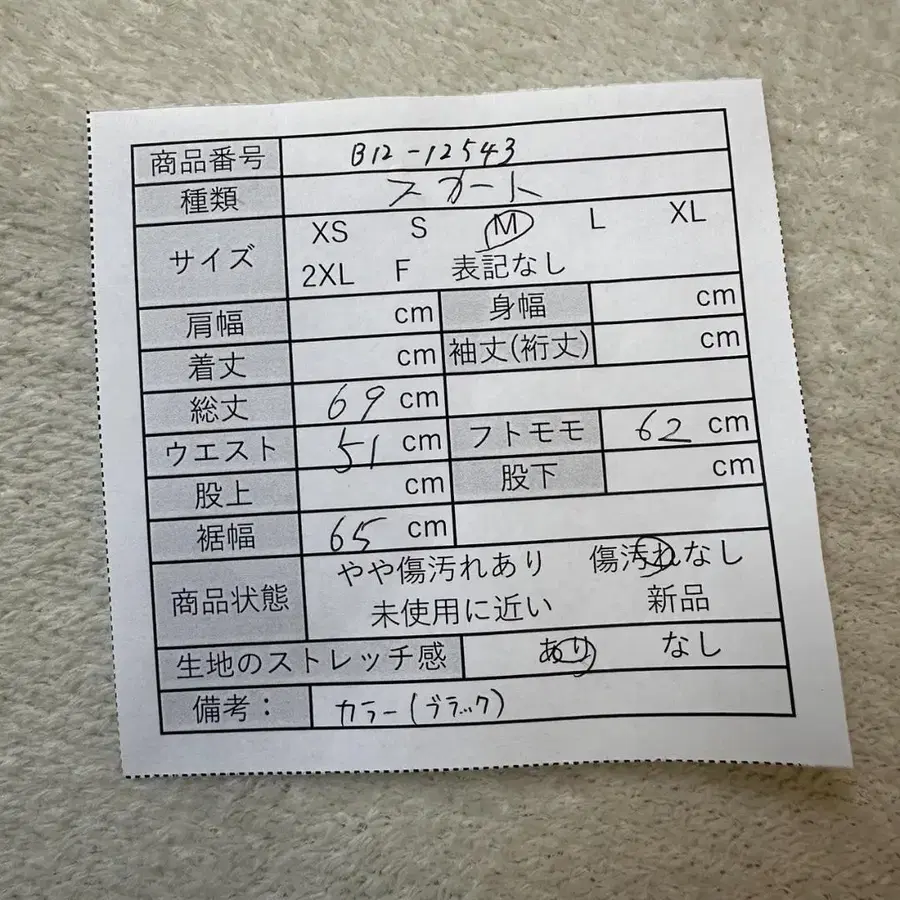 商品番号 B12-12543
種類 スカート
サイズ XS S M L XL
2XL F 表記なし
肩幅 cm 身幅 cm
着丈 cm 袖丈(裄丈) cm
総丈 69 cm
ウエスト 51 cm フトモモ 62 cm
股上 cm 股下 cm
裾幅 65 cm
商品状態 やや傷汚れあり 傷汚れなし
未使用に近い 新品
生地のストレッチ感 あり なし
備考： カラー(ブラック)